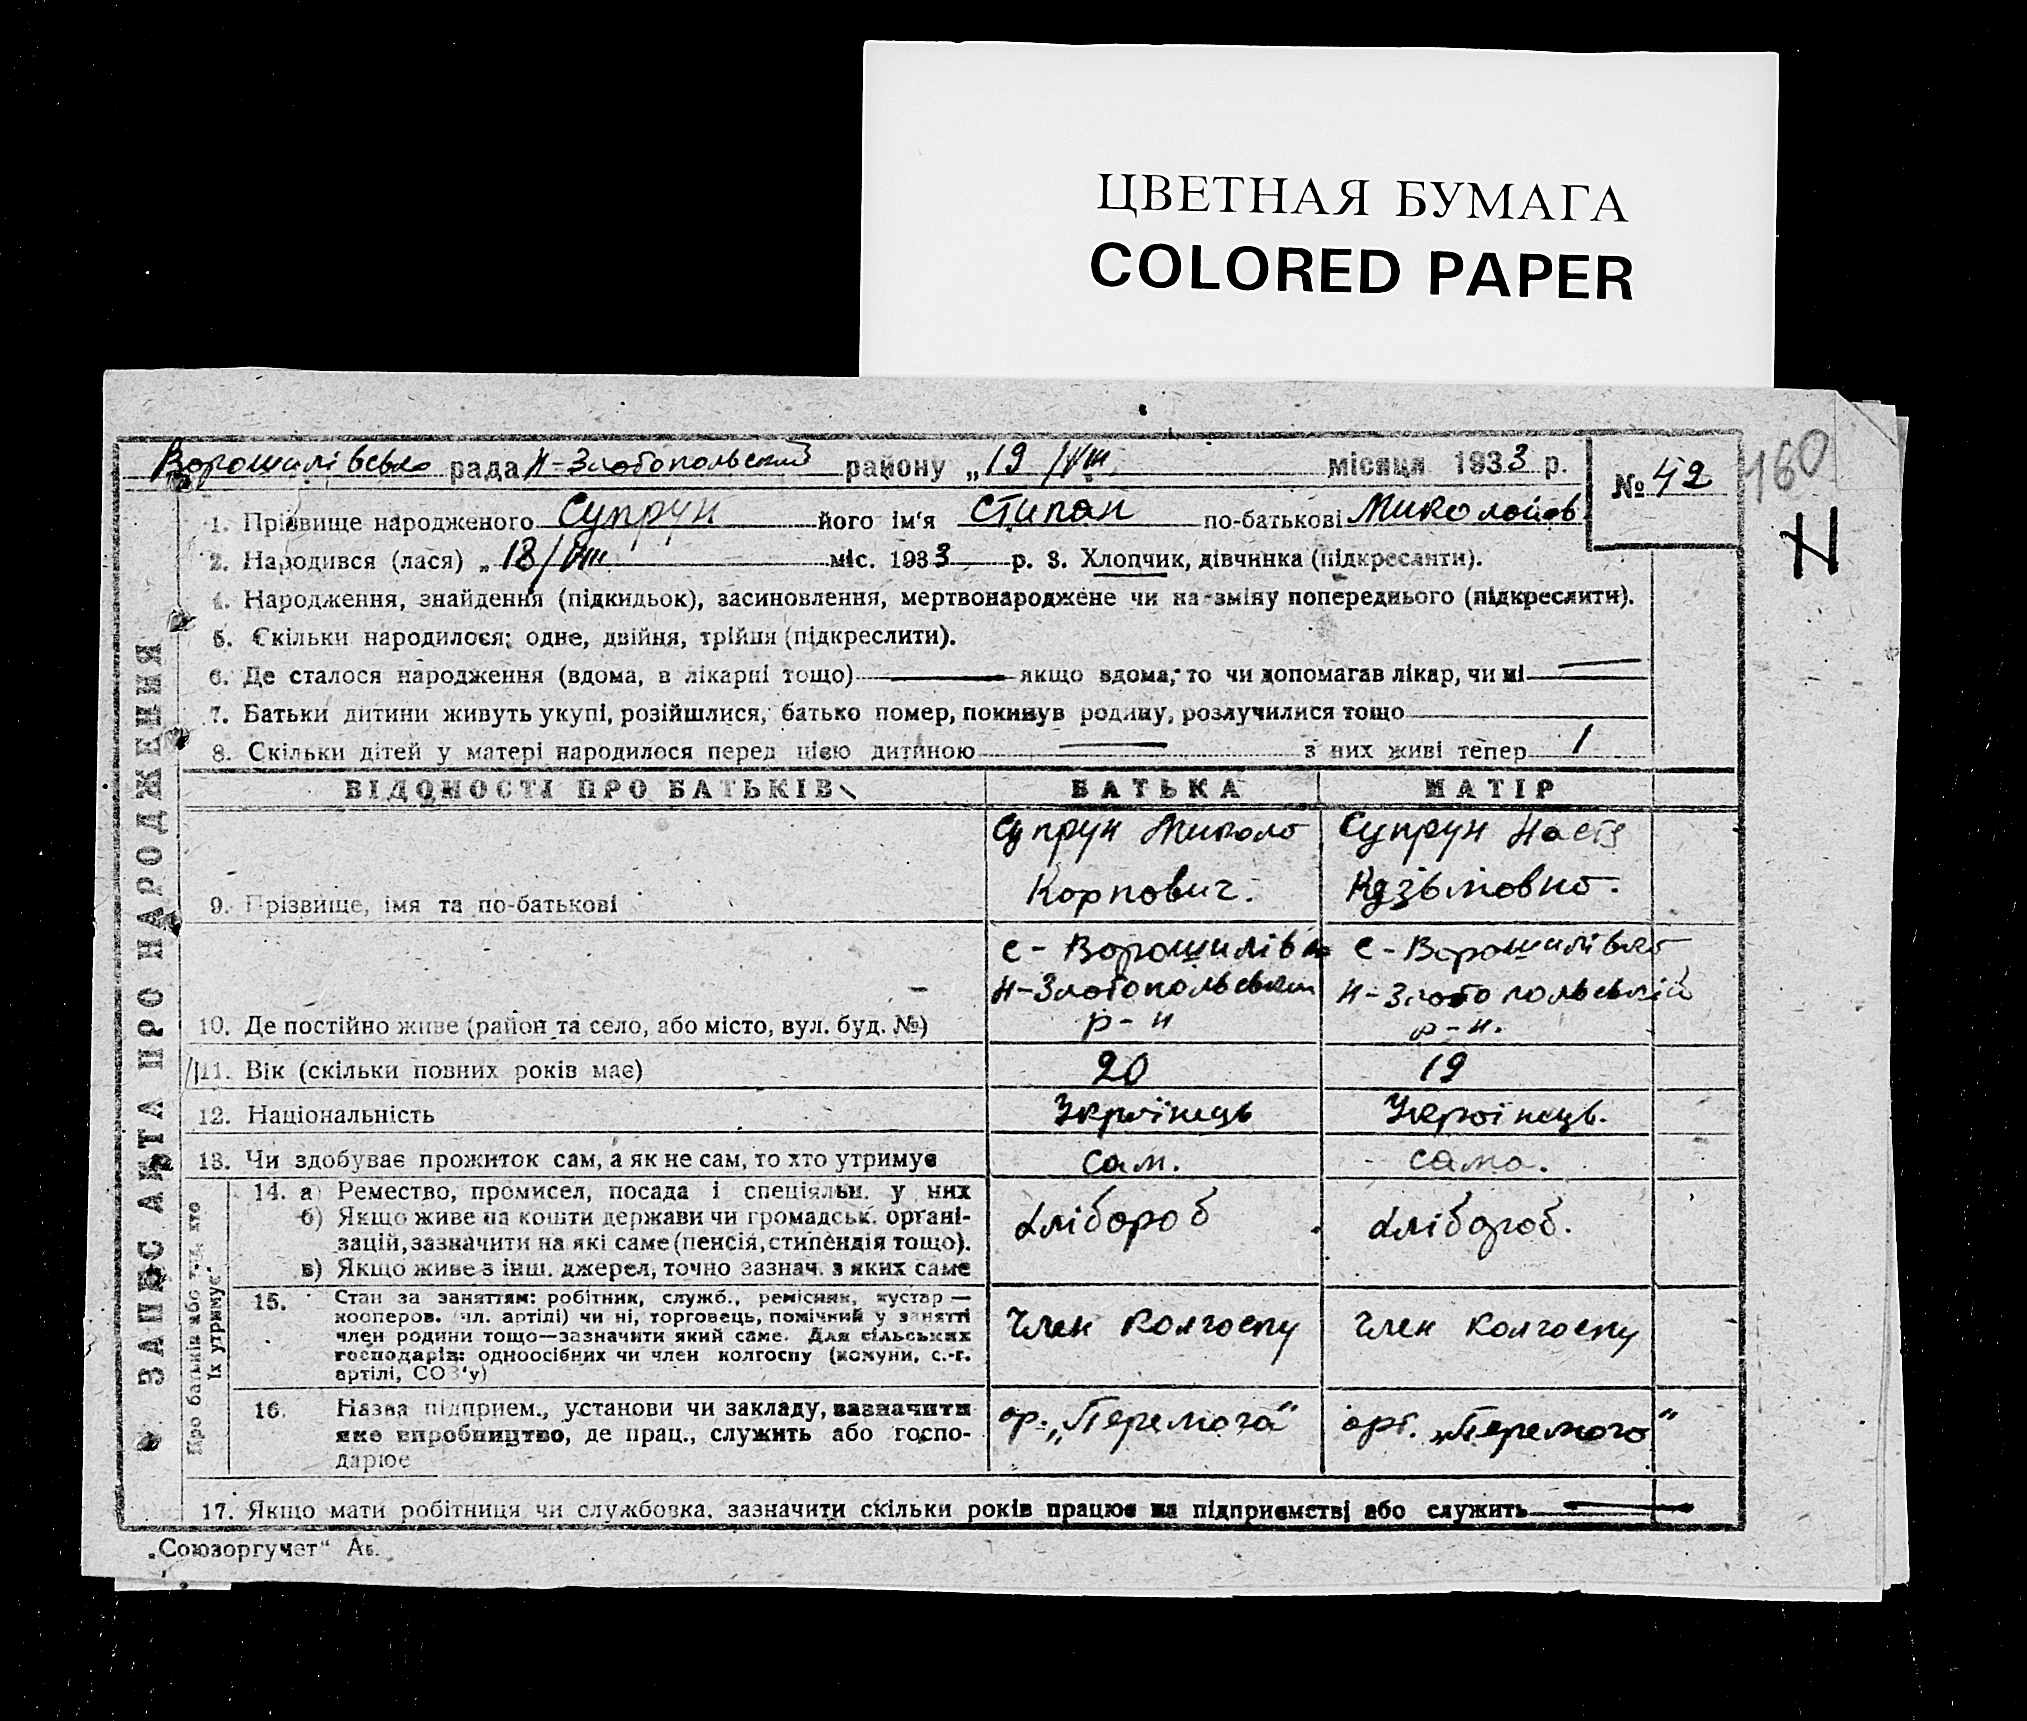 ЦВЕТНАЯ БУМАГА
COLORED PAPER
Ворошилівсько рада Н-Златопольський району „19/VIII місяця 1933 р. № 42
160
1. Прізвище народженого Супрун його ім'я Стипан по-батькові Миколойов
2. Народився (лася) „18/VIII міс. 1933 р. 3. Хлопчик, дівчинка (підкреслити).
4. Народження, знайдення (підкидьок), засиновлення, мертвонароджене чи на зміну попереднього (підкреслити).
5. Скільки народилося: одне, двійня, трійня (підкреслити).
6. Де сталося народження (вдома, в лікарні тощо) — якщо вдома, то чи допомагав лікар, чи ні —
7. Батьки дитини живуть укупі, розійшлися, батько помер, покинув родину, розлучилися тощо
8. Скільки дітей у матері народилося перед цією дитиною — з них живі тепер 1
ВІДОМОСТІ ПРО БАТЬКІВ БАТЬКА МАТІР
Супрун Миколо Супрун Настя
9. Прізвище, імя та по-батькові Корпович. Кузьмовно.
с-Ворошилівка с-Ворошилівко
Н-Златопольський Н-Злотопольській
10. Де постійно живе (район та село, або місто, вул. буд. №) р-н р-н.
11. Вік (скільки повних років має) 20 19
12. Національність Україінець Україінець.
13. Чи здобуває прожиток сам, а як не сам, то хто утримує сам. само.
14. а) Ремество, промисел, посада і спеціяльн. у них
б) Якщо живе на кошти держави чи громадськ. органі-
зацій, зазначити на які саме (пенсія, стипендія тощо). хлібороб хлібороб.
в) Якщо живе з інш. джерел, точно зазнач. з яких саме
15. Стан за заняттям: робітник, служб., ремісник, кустар —
кооперов. (чл. артілі) чи ні, торговець, помічний у занятті
член родини тощо—зазначити який саме. Для сільських Член колгоспу Член колгоспу
господарів: одноосібних чи член колгоспу (комуни, с.-г.
артілі, СОЗ'у)
16. Назва підприєм., установи чи закладу, зазначити ар. „Перемога" арт. „Перемого"
яке виробництво, де прац., служить або госпо-
дарює
17. Якщо мати робітниця чи службовка, зазначити скільки років працює на підприємстві або служить —
„Союзоргучет"
ЗАПИС АКТА ПРО НАРОДЖЕННЯ
їх утримує